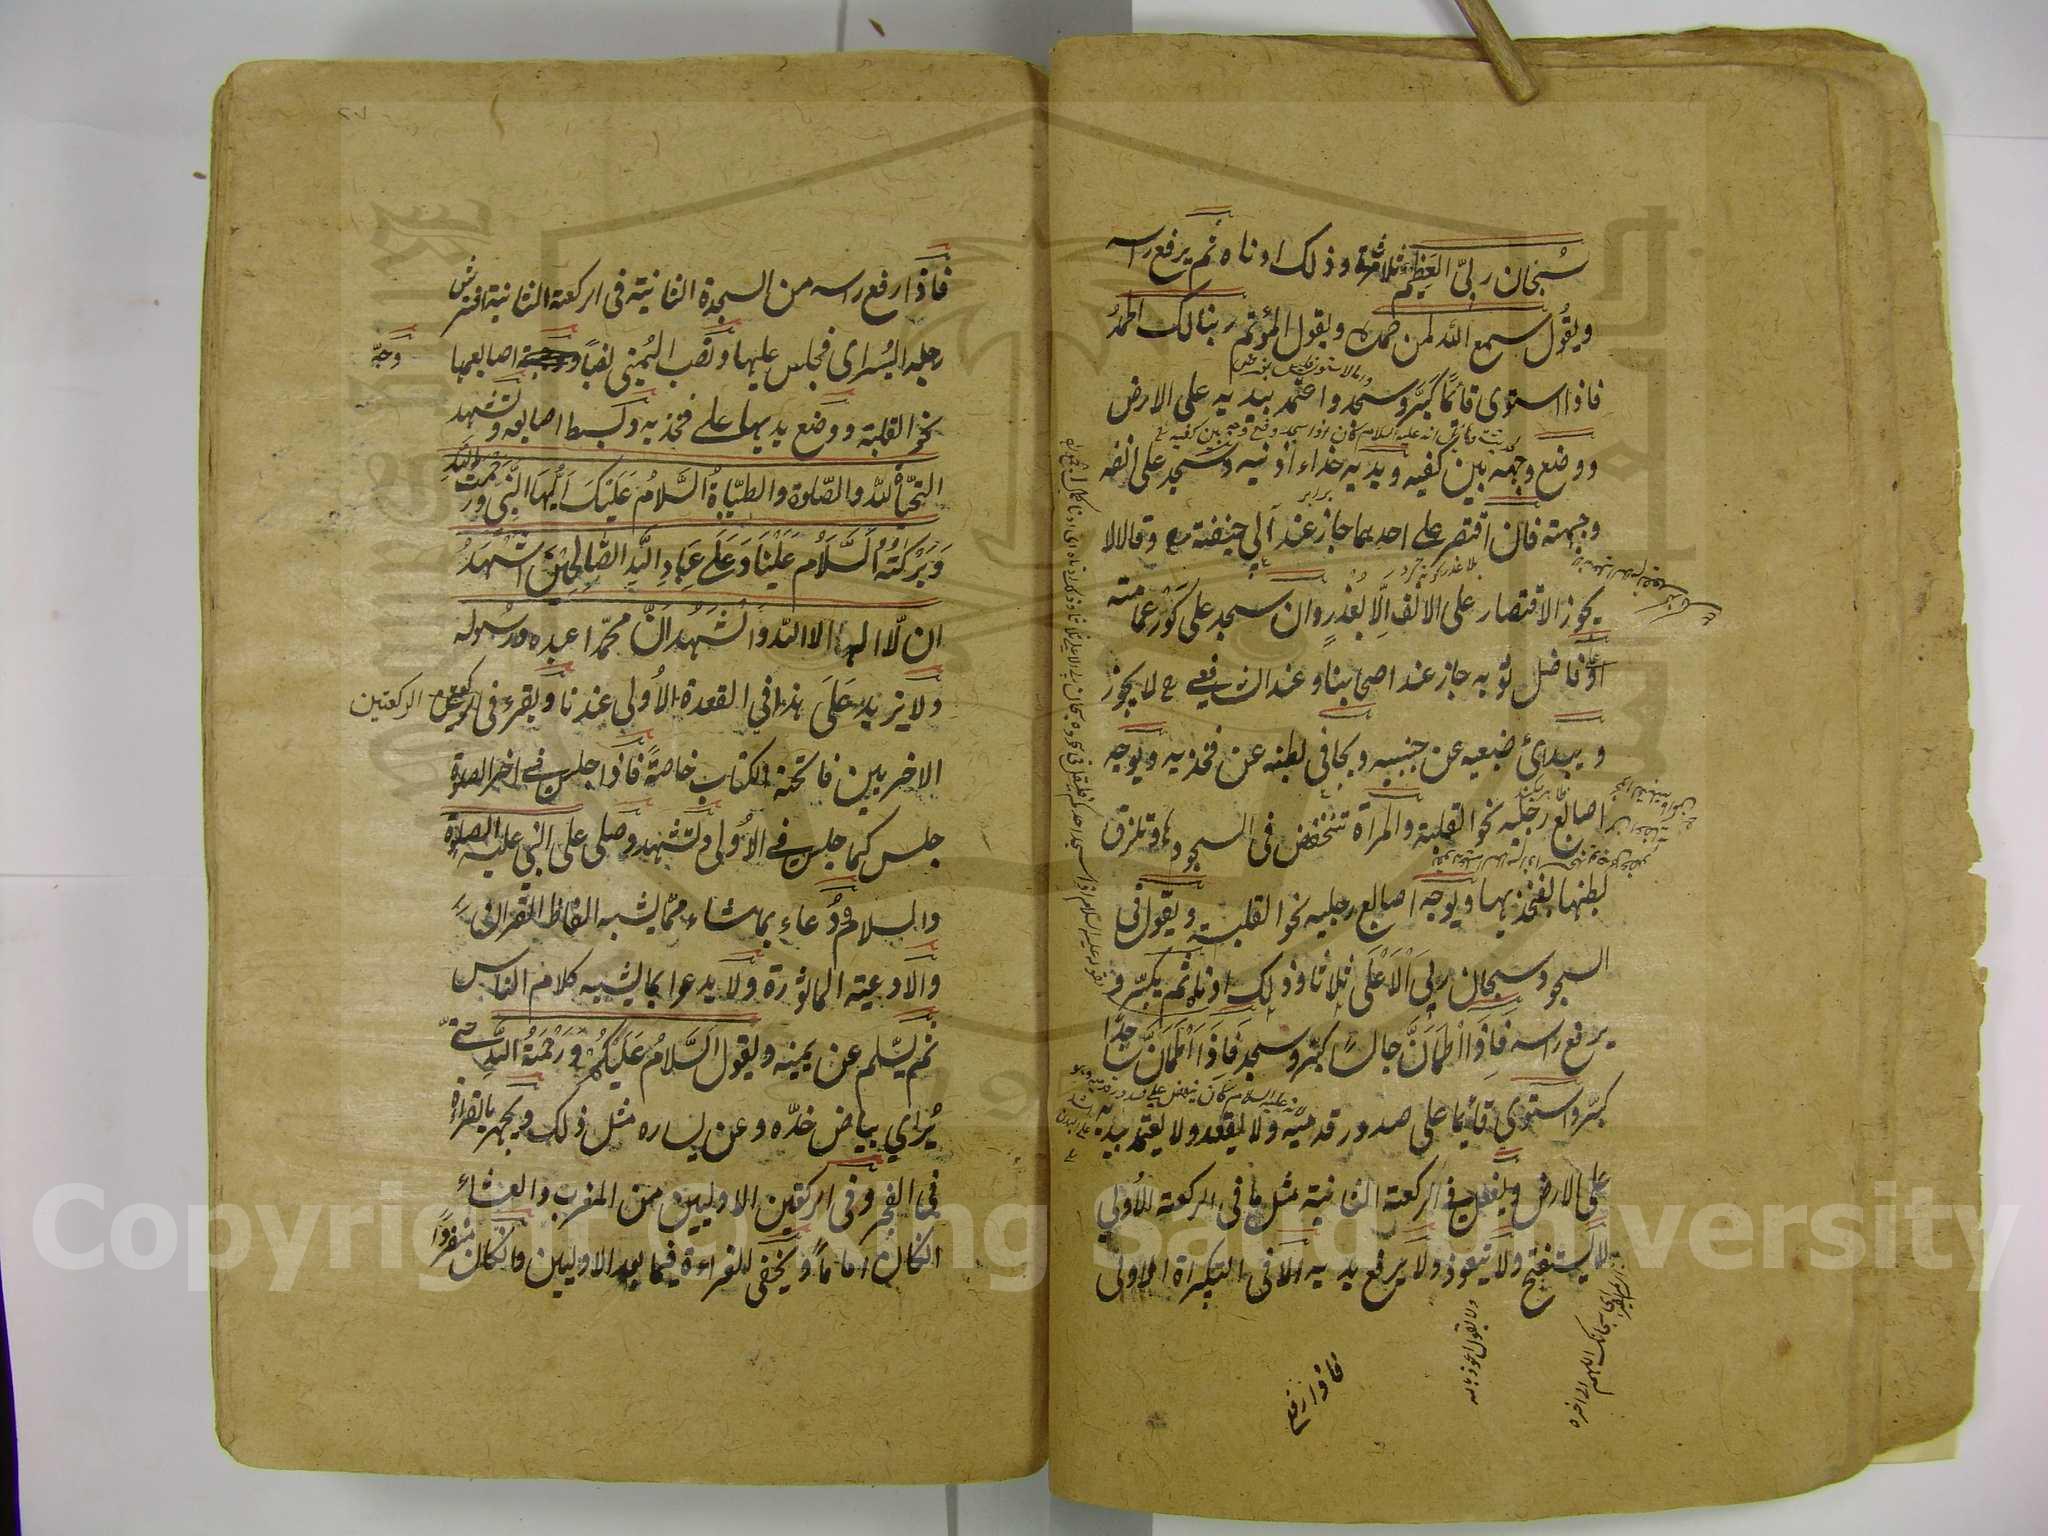 سُبْحَان ربيَّ العَظِيْم ثلاثة وذلك ادناه ثم يرفع راسه
ويقُول سمع الله لمن حمده ويقول المؤتم ربنا لك الحمدُ
فاذا استوى قائمًا كبَّر وسجد واعتمد بيديه على الارض
ووضع وجهه بين كفيه ويديه حذاء اذنيه وسجد على انفه
وجبهته فان اقتصر على احدهما جاز عند ابى حنيفة رح وقالا لا
يجوز الاقتصار على الانف اِلّا بعُذرٍ وان سجد على كَوْر عمامته
اوْ فاضل ثوبه جاز عند اصحابنا وعند الشافعي رح لا يجوز
ويبدئ ضبعيه عن جنبيه ويجافى بطنه عن فخذيه ويوجه
اصابع رجليه نحو القبلة والمراة تنخفض فى السجود وتلزق
بطنها بفخذيها ويوجه اصابع رجليه نحو القبلة ويقول فى
السجود سبحان ربي الْاَعْلَى ثلاثا وذلك ادناه ثم يكبّر و
يرفع راسه فَاِذَا اطْمَاَنَّ جالسًا كبّر وسجد فَاِذَا اطْمَاَنَّ سَاجِدًا
كبّر واستوى قائما على صدور قدميه ولا يقعد ولا يعتمد بيديه
على الارض ويفعل فى الركعة الثانية مثل ما فى الركعة الأولى
لا يستفتح ولا يتعوذ ولا يرفع يديه الا فى التكبيراة الاولى
ولا يقول اعوذ بالله
اى سبحانك اللهم الى اخره
فاذا رفع
فاذا رفع راسه من السجدة الثانية فى الركعة الثانية افترش
رجله اليُسراى فجلس عليها ونصب اليُمنى نصبًا ووجه اصابعها
وَجّه
نحو القبلة ووضع يديها على فخذيه وبسط اصابعه وتشهد
التحيَّاة لله والصّلوة والطيّباةُ السَّلامُ عَلَيْكَ اَيُّهَا النَّبِي وَرَحْمَتُ اللهِ
وَبَرَكَتُه اَلسَّلَامُ عَلَيْنَا وَعَلَى عِبَادِ اللهِ الصَّالِحِيْنَ اَشْهَدُ
ان لَّا اله الا الله وَاَشْهَدُ اَنَّ محمّدا عبده ورسُوله
ولا يزيد عَلَى هذا في القعدة الأولى عندنا ويقرء فى الركعتين
الركعتين
الاخريين فاتحة الكتاب خاصةً فاذا جلس فى اخر الصلوة
جلس كما جلس فى الأولى وتشهد وصلى على النبي عليه الصلوة
والسلام ودُعاء بما شاء ممّا يشبه الفاظ القرانى
والادعية الماثورة ولا يدعوا بما يشبه كلام الناس
ثم يسّلم عن يمينه ويقول السَّلامُ عَلَيْكُمْ وَرَحْمَةُ اللهِ حتّى
يُرَاي بياض خدّه وعن يساره مثل ذلك ويجهر بالقراءة
فى الفجر وفى الركعتين الاوليين من المغرب والعشاء
انكان اماماً ويخفى القراءة فيما بعد الاوليين وانكان منفردًا
Copyright © King Saud University